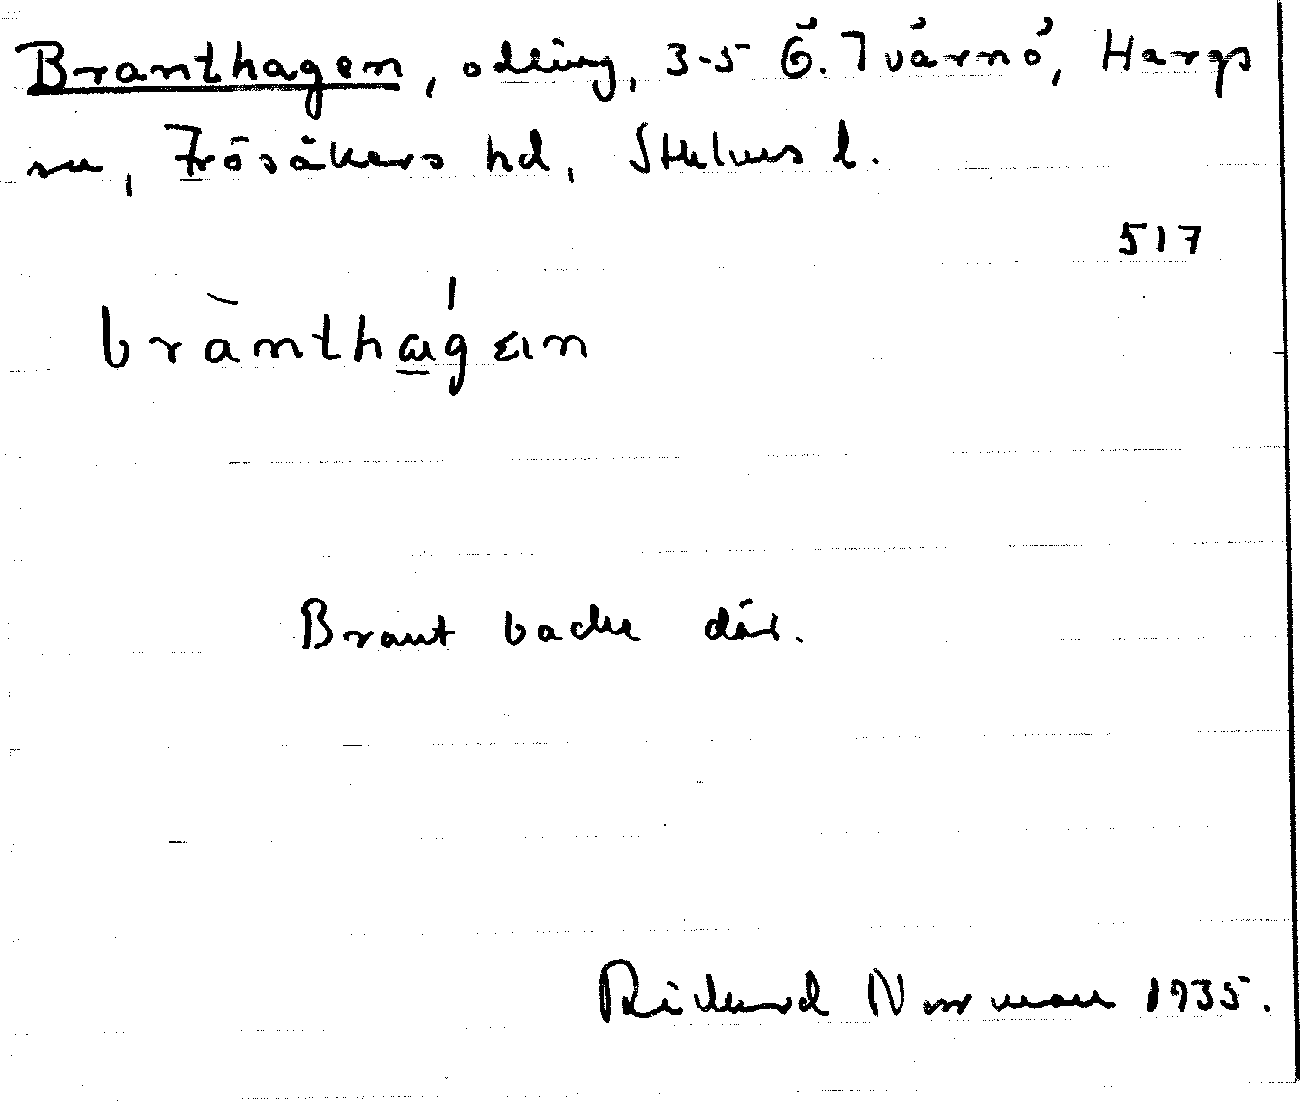 Branthagen, odling, 3-5 Ö. Tvärnö, Hargs
sn, Frösåkers hd, Sthlms l.
517
Brant backe där.
Rickard Norrman 1935.